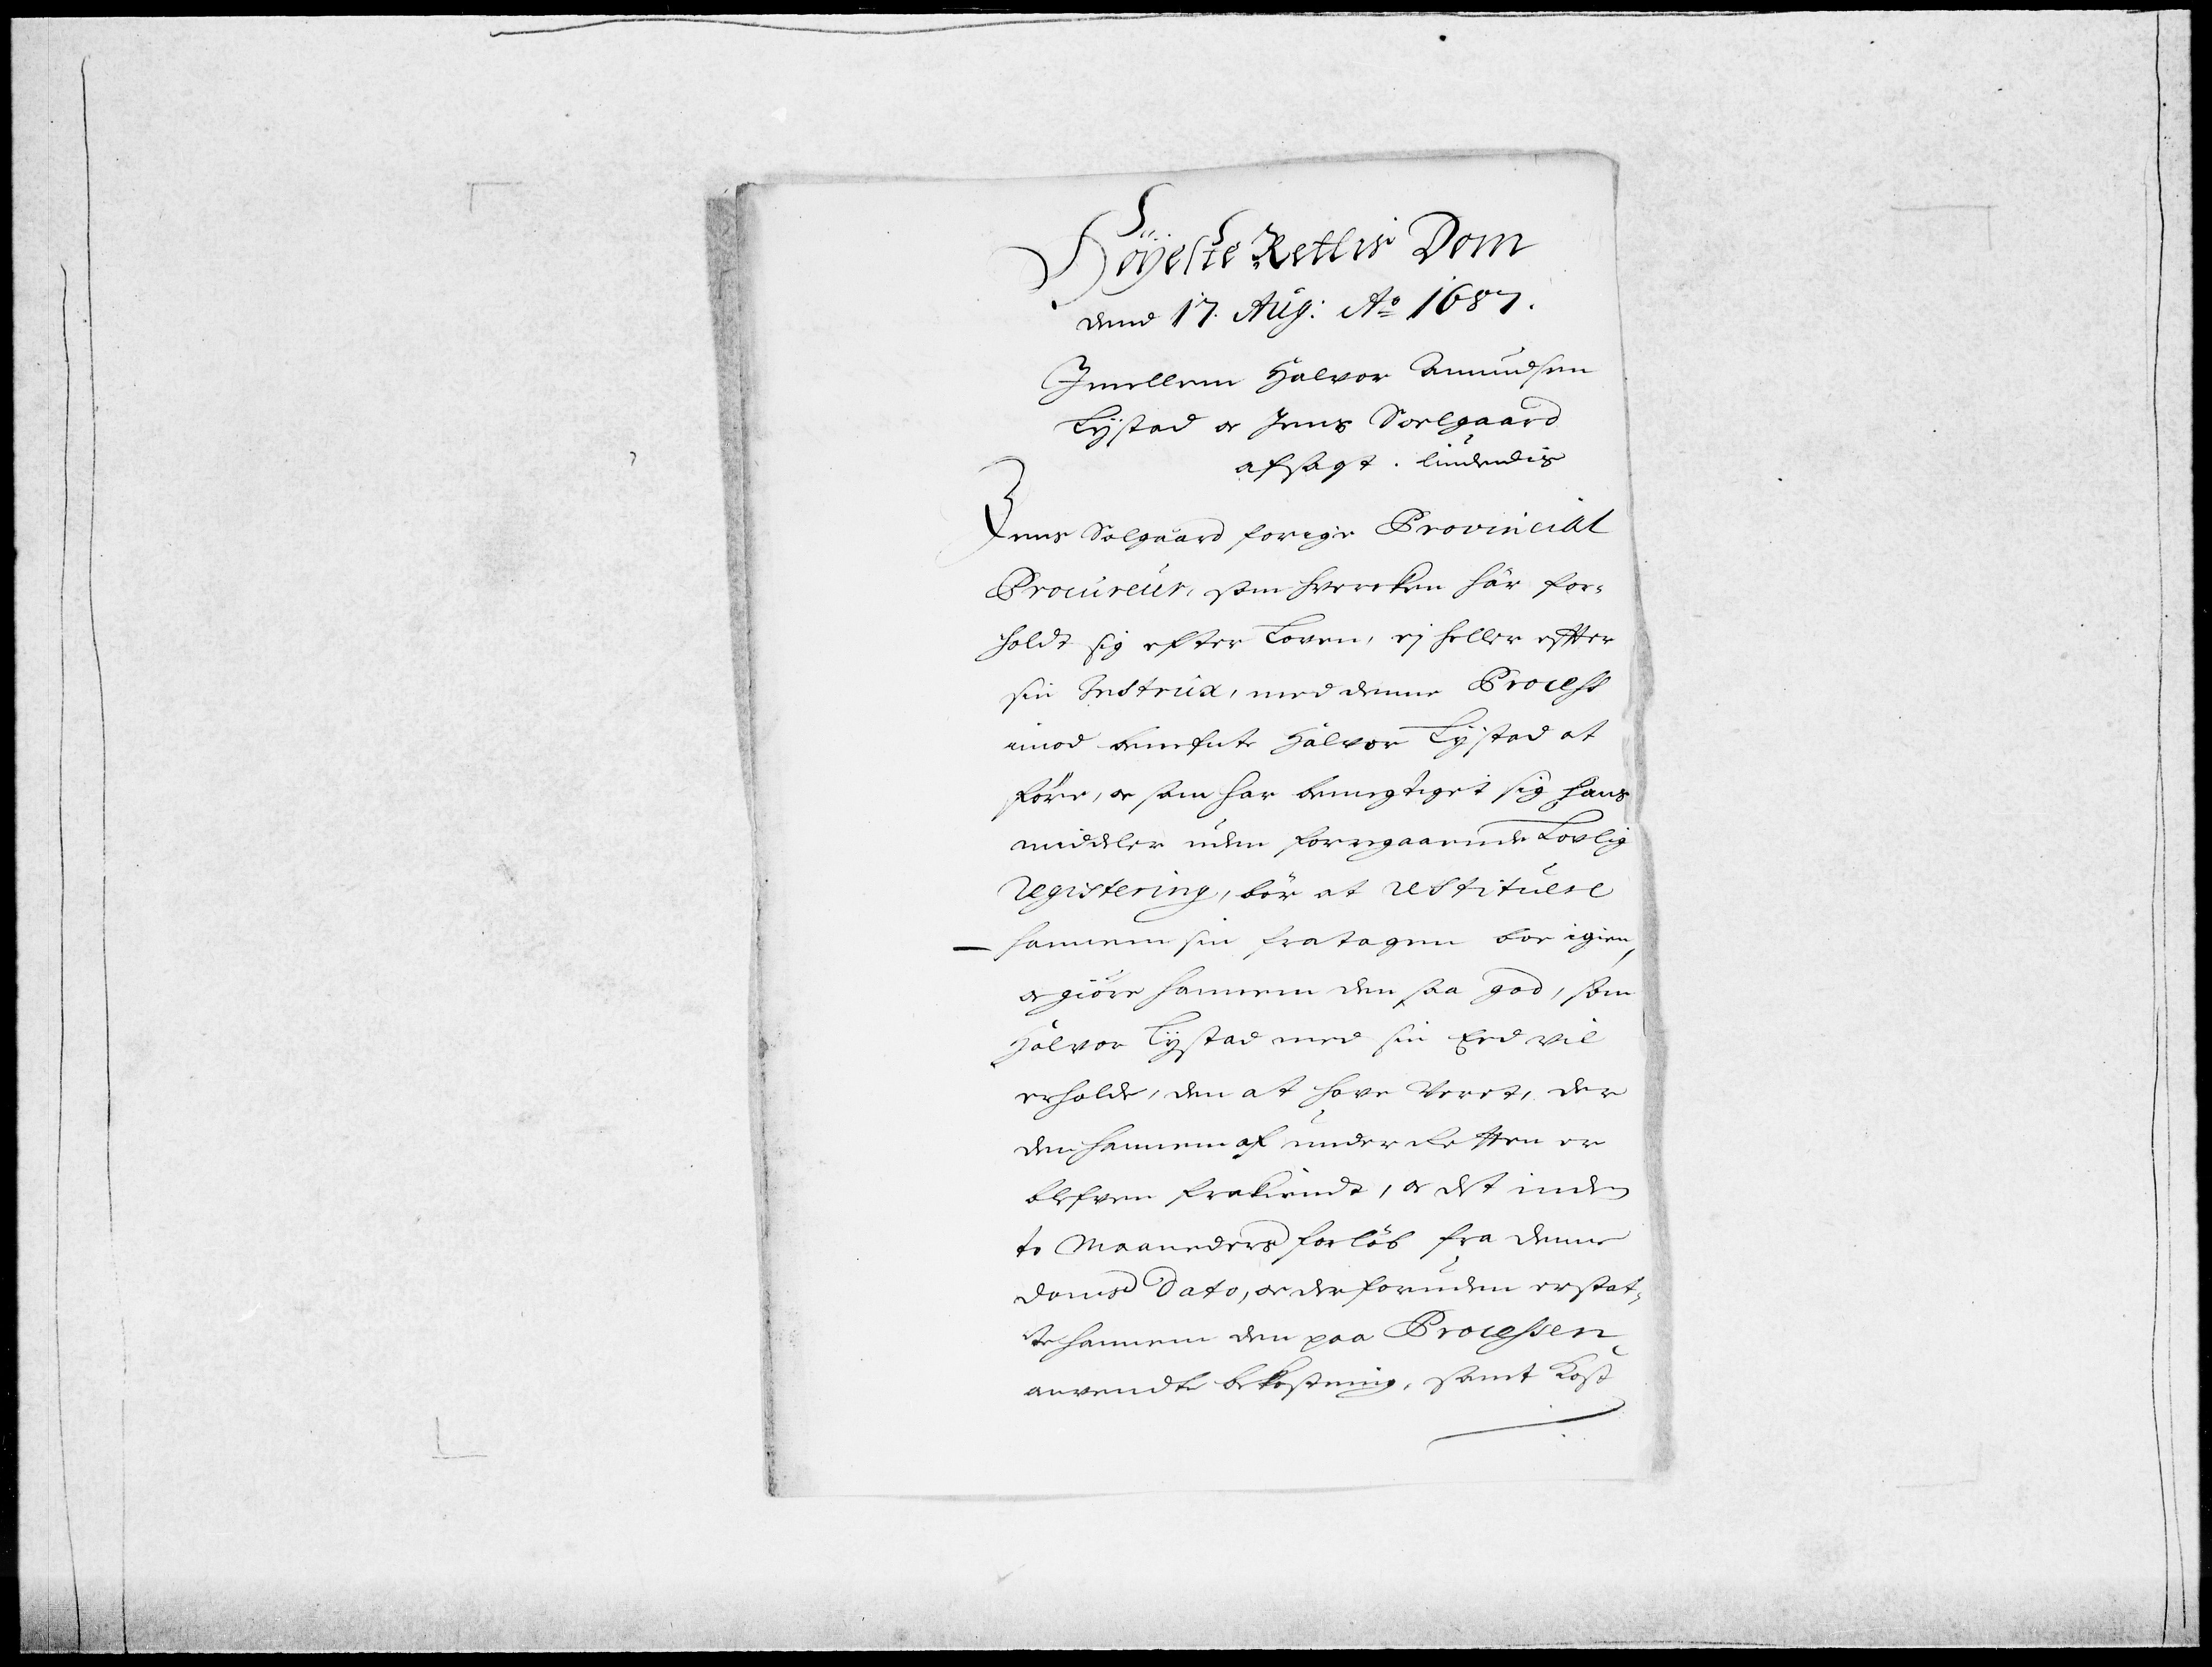 Höÿeste Rettis Dom
dend 17. Aug: Ao 1687.
Imellem Halvor Amudsen
Lÿstad oc Jens Soelgaard
afsagt. liudendis
Jens Solgaard forige Provincial
Procureur, som hvercken har for-
holdt sig efter Loven, ej heller effter
sin Instrux, med denne Process
imod bemelte Halvor Lÿstad at
före, oc som har bemegtiget sig hans
midler uden foregaaende Lovlig
Registering, bör at restituere
hannem sin fratagen boe igien,
oc giöre hannem den saa god, som
Halvor Lÿstad med sin Eed vil
erholde, den at have Veret, der
den hannem af underRetten er
blefven frakiendt, oc det inden
to Maaneders forlöb fra denne
doms Dato, oc derforuden erstat-
te hannem den paa Processen
anvendte bekostning, samt Kost